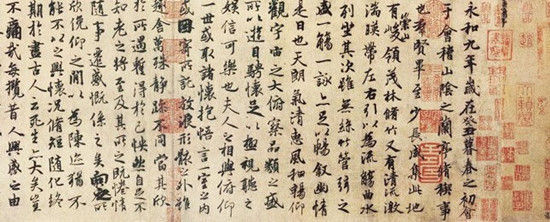 永和九年歲在癸丑暮春之初會
于會稽山陰之蘭亭脩稧事
也群賢畢至少長咸集此地
有崇山峻領茂林脩竹又有清流激
湍暎帶左右引以為流觴曲水
列坐其次雖無絲竹管弦之
盛一觴一詠亦足以暢敘幽情
是日也天朗氣清惠風和暢仰
觀宇宙之大俯察品類之盛
所以遊目騁懷足以極視聽之
娛信可樂也夫人之相與俯仰
一世或取諸懷抱悟言一室之內
或因寄所託放浪形骸之外雖
趣舍萬殊靜躁不同當其欣
於所遇暫得於己怏然自足不
知老之將至及其所之既惓情
隨事遷感慨係之矣向之所欣
俛仰之閒以為陳迹猶不
能不以之興懷況脩短隨化終
期於盡古人云死生亦大矣豈
不痛哉每攬昔人興感之由